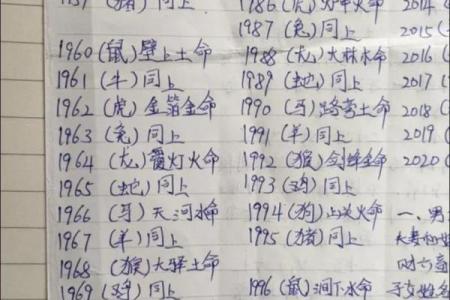 (猪)同上
1960(鼠)壁上土命
1961(牛)同上
1962(虎)金箔金命
1963(兔)同上
1964(龙)覆灯火命
1965(蛇)同上
1966(马)天河水命
1967(羊)同上
1968(猴)大驿土命
1969(鸡)同上
1986(虎)炉中火命
1987(兔)同上
1988(龙)大林木命
1989(蛇)同上
1990(马)路旁土命
1991(羊)同上
1992(猴)剑锋金命
1993(鸡)同上
1994(狗)山头火命
1995(猪)同上
1996(鼠)涧下水命
2014(
2015(
2016(
2017(
2018(
2019(
2020(
一、男
夫妻